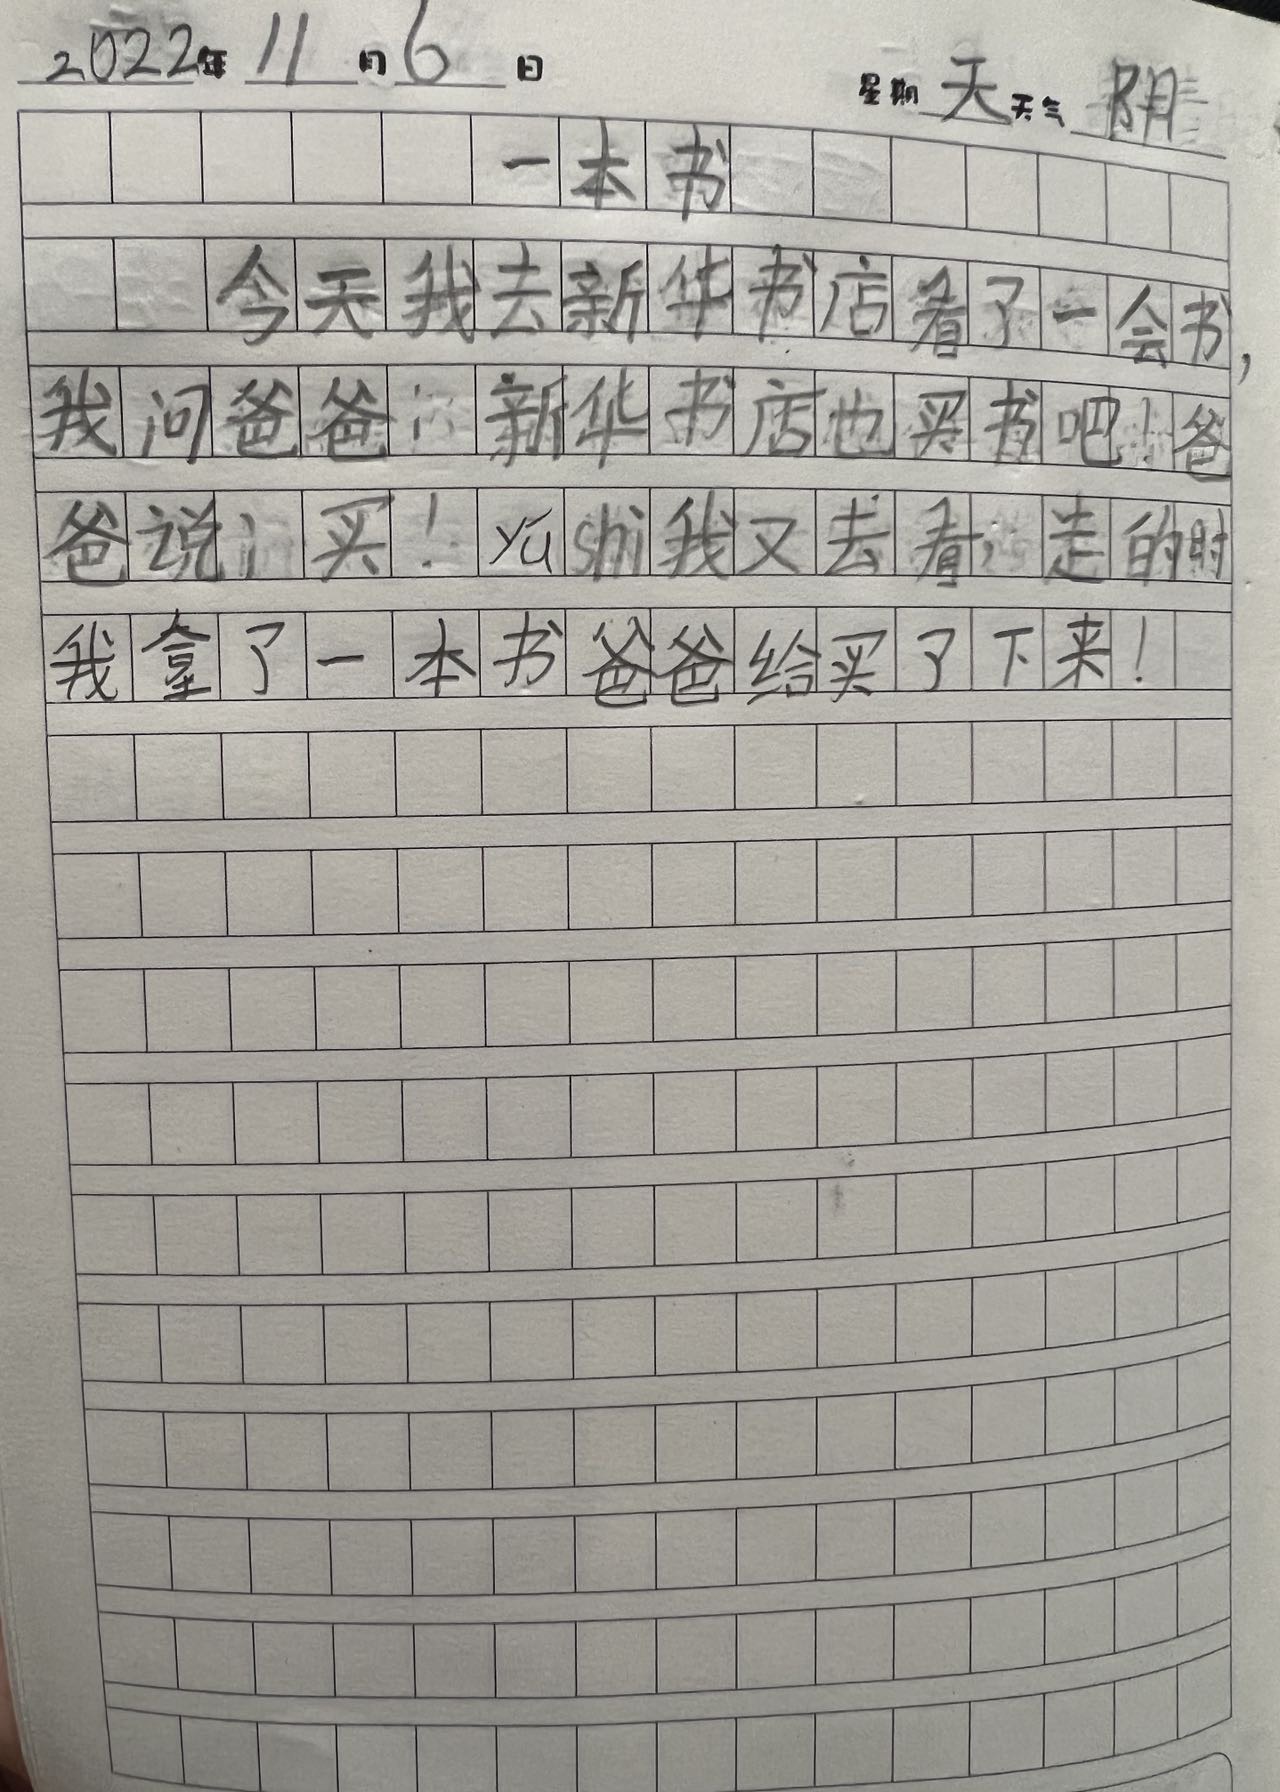 2022年 11 月 6 日 星期 天 天气 阴
一本书
今天我去新华书店看了一会书,
我问爸爸:新华书店也买书吧!爸
爸说:买!yúshì我又去看,走的时
我拿了一本书爸爸给买了下来!